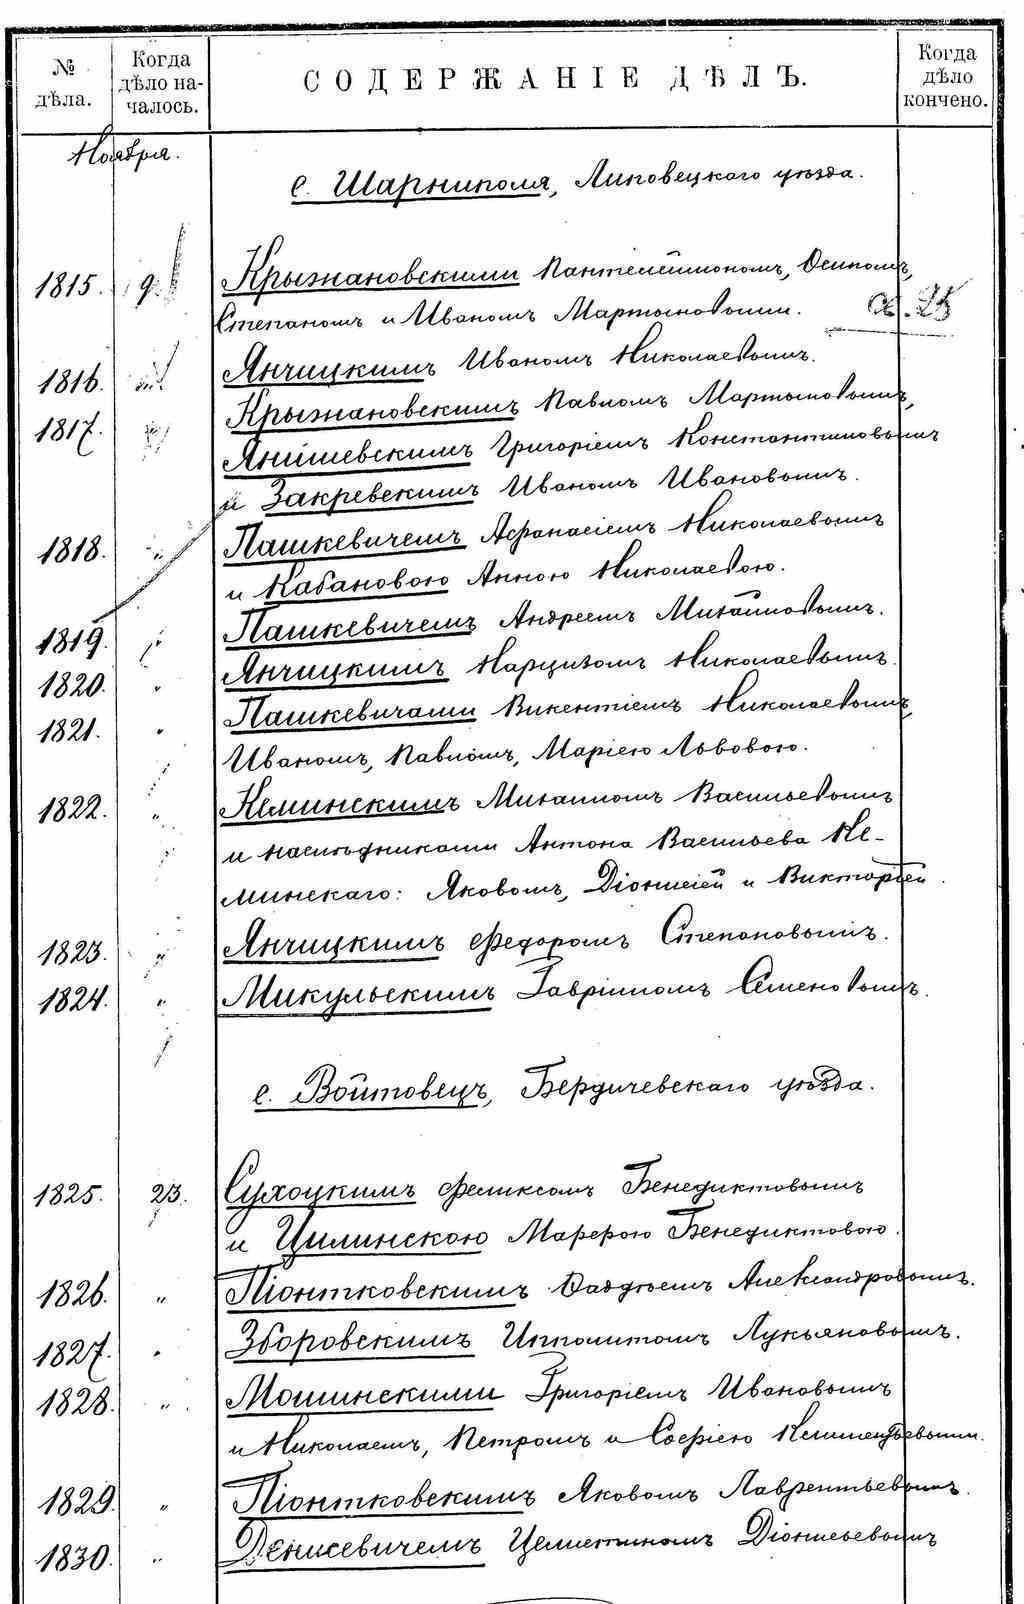 № дѣла.
Когда дѣло на-чалось.
СОДЕРЖАНІЕ ДѢЛЪ.
Когда дѣло кончено.
Ноября.
с. Шарниполя, Липовецкаго уѣзда.
1815. 9. Крыжановскими Пантелеймономъ, Осипомъ,
Степаномъ и Иваномъ Мартыновыми.
1816. " Янчицкимъ Иваномъ Николаевымъ.
1817. " Крыжановскимъ Павломъ Мартыновымъ,
Янишевскимъ Григоріемъ Константиновымъ
и Закревскимъ Иваномъ Ивановымъ.
1818. " Пашкевичемъ Афанасіемъ Николаевымъ
и Кабановою Анною Николаевою.
1819. " Пашкевичемъ Андреемъ Михайловымъ.
1820. " Янчицкимъ Нарцизомъ Николаевымъ.
1821. " Пашкевичами Викентіемъ Николаевымъ,
Иваномъ, Павломъ, Маріею Львовою.
1822. " Кеминскимъ Михаиломъ Васильевымъ
и наслѣдниками Антона Васильева Ке-
минскаго: Яковомъ, Діонисіей и Викторіей.
1823. " Янчицкимъ Федоромъ Степановымъ.
1824. " Микульскимъ Гавріиломъ Семеновымъ.
с. Войтовецъ, Бердичевскаго уѣзда.
1825. 23. Сухоцкимъ Феликсомъ Бенедиктовымъ
и Цилинскою Марфою Бенедиктовою.
1826. " Піонтковскимъ Фаддѣемъ Александровымъ.
1827. " Зборовскимъ Ипполитомъ Лукьяновымъ.
1828. " Мошинскими Григоріемъ Ивановымъ
и Николаемъ, Петромъ и Софіею Клементьевыми.
1829. " Піонтковскимъ Яковомъ Лаврентьевымъ.
1830. " Денисевичемъ Целестиномъ Діонисьевымъ